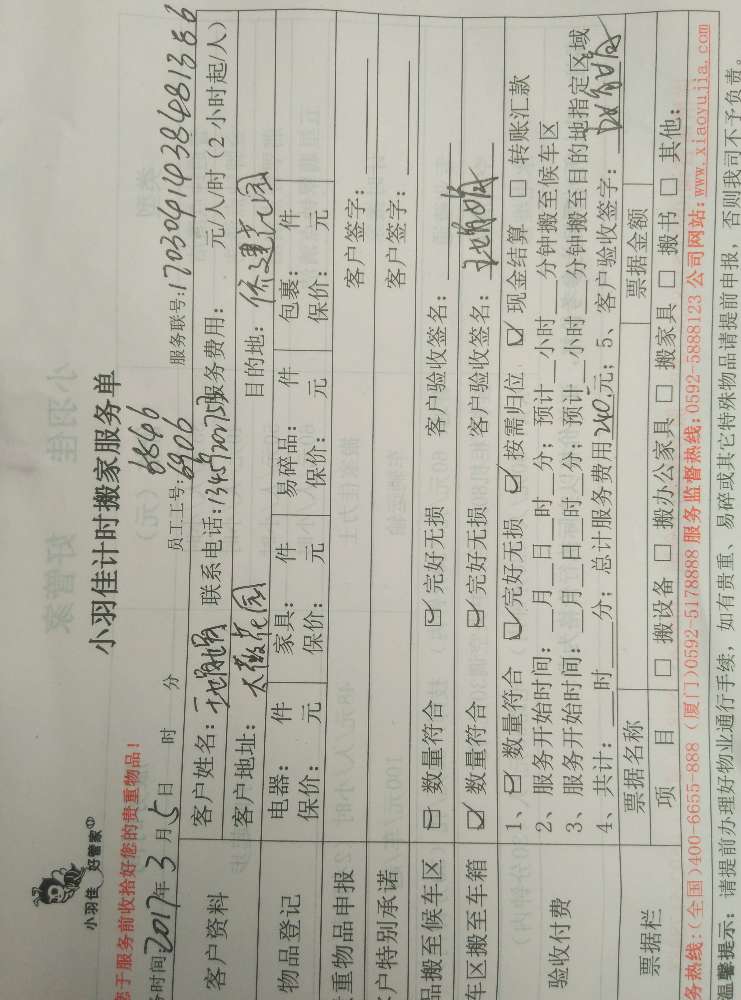 小羽佳 好管家
小羽佳计时搬家服务单
您于服务前收拾好您的贵重物品！
务时间:2017年3月5日 时 分 员工工号: 6846 6906 服务联号:17030414038481386
客户资料 客户姓名: 联系电话: 服务费用: 元/人/时(2小时起/人)
客户地址: 大微花园 目的地: 侨建花园
物品登记 电器: 件 家具: 件 易碎品: 件 包裹: 件
保价: 元 保价: 元 保价: 元 保价: 元
重物品申报 客户签字:
客户特别承诺 客户签字:
品搬至候车区 数量符合 完好无损 客户验收签名:
车区搬至车箱 数量符合 完好无损 客户验收签名:
验收付费 1、数量符合 完好无损 按需归位 现金结算 转账汇款
2、服务开始时间: 月 日 时 分; 预计 小时 分钟搬至候车区
3、服务开始时间: 月 日 时 分; 预计 小时 分钟搬至目的地指定区域
4、共计: 时 分; 总计服务费用240元; 5、客户验收签字:
票据栏 票据名称 票据金额
项 目 搬设备 搬办公家具 搬家具 搬书 其他:
务热线:(全国)400-6655-888 (厦门)0592-5178888 服务监督热线:0592-5888123 公司网站:www.xiaoyujia.com
温馨提示: 请提前办理好物业通行手续, 如有贵重、易碎或其它特殊物品请提前申报, 否则我司不予负责。